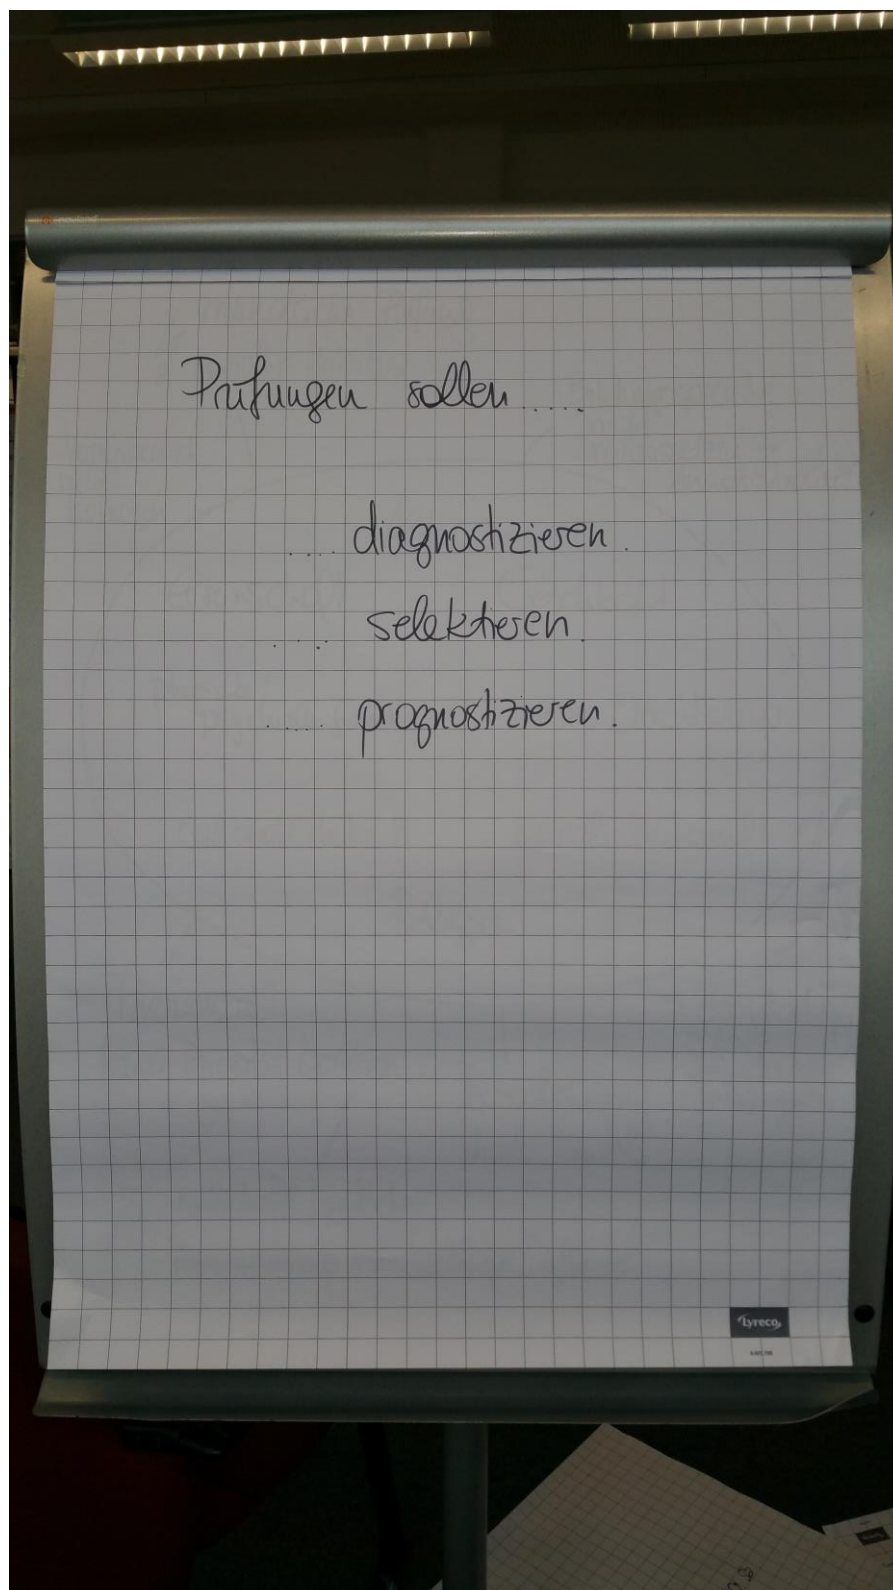 Prüfungen sollen.....
.... diagnostizieren.
.... selektieren.
.... prognostizieren.
Lyreco